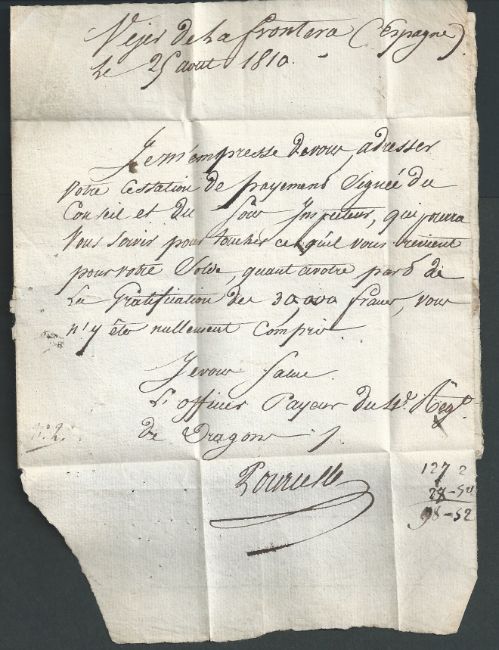 Vejer de La frontera (Espagne)
Le 25 aout 1810.
Je m'empresse devous adresser
votre Cessation de payement Signée du
Conseil et du Sous Inspecteur, que pourra
Vous servir pour toucher ce qu'il vous revient
pour votre Solde, quant avotre part de
La Gratification des 30,000 francs, vous
n'y êtes nullement Compris.
Jevous Salue
L'officier Payeur du Regt.
de Dragons
127 2
28-50
98-52